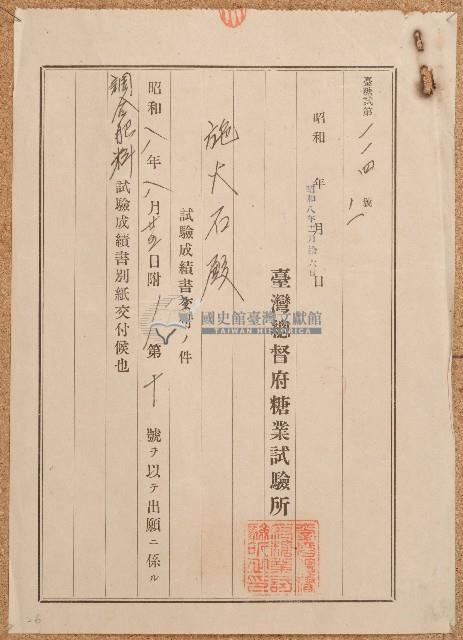 臺糖試第一一四號
昭和 年 月 日
昭和八年十二月拾六日
臺灣總督府糖業試驗所
施大石殿
試驗成績書交付ノ件
昭和八年八月廿四日附 第十 號ヲ以テ出願ニ係ル
調合肥料試驗成績書別紙交付候也
國史館臺灣文獻館
TAIWAN HISTORICA
26